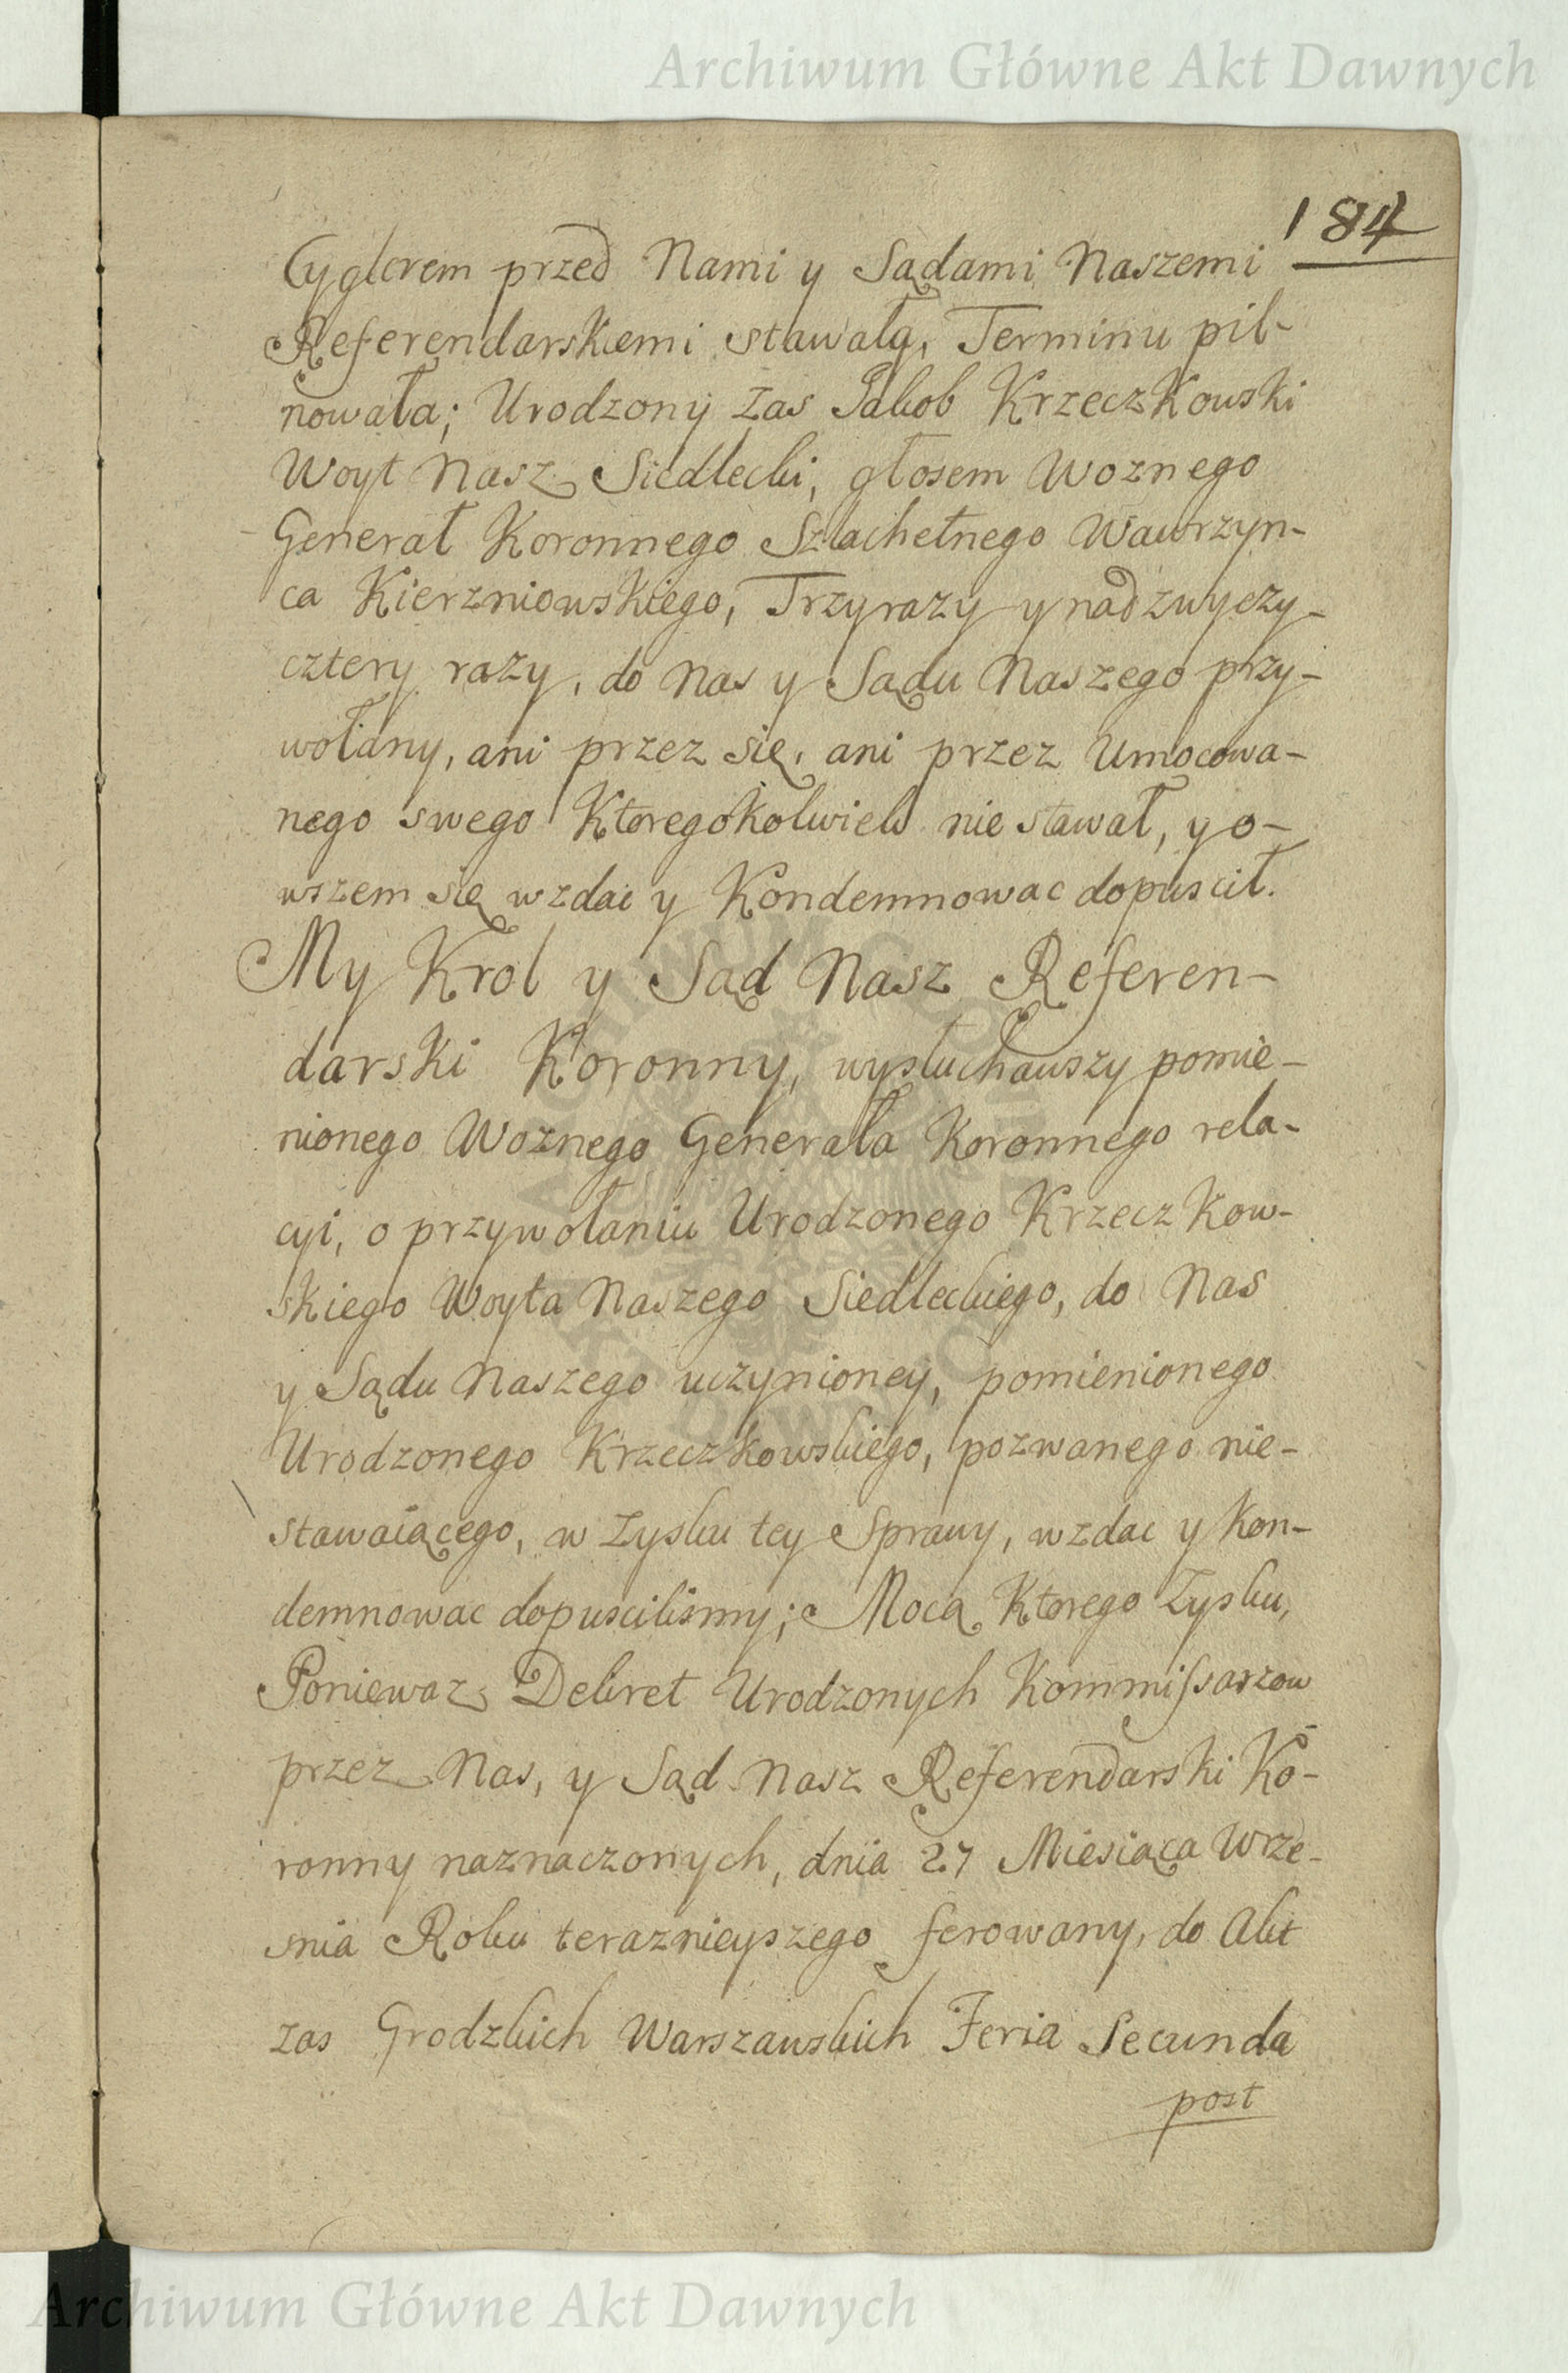 Archiwum Główne Akt Dawnych
184
Cyglerem przed Nami y Sądami Naszemi
Referendarskiemi stawała, Terminu pil-
nowała; Urodzony zas Jakob Krzeczkowski
Woyt Nasz Siedlecki, głosem Woznego
Generał Koronnego Szlachetnego Wawrzyn-
ca Kierzniowskiego, Trzy razy y nad zwyczy-
cztery razy, do Nas y Sądu Naszego przy-
wołany, ani przez się, ani przez Umocowa-
nego swego Ktoregokolwiek nie stawał, y o-
wszem się wzdac y Kondemnowac dopuscił.
My Krol y Sąd Nasz Referen-
darski Koronny, wysłuchawszy pomie-
nionego Woznego Generała Koronnego rela-
cyi, o przywołaniu Urodzonego Krzeczkow-
skiego Woyta Naszego Siedleckiego, do Nas
y Sądu Naszego uczynioney, pomienionego
Urodzonego Krzeczkowskiego, pozwanego nie-
stawaiącego, w zysku tey Sprawy, wzdac y Kon-
demnowac dopuscilismy; Mocą Ktorego Zysku,
Poniewaz Dekret Urodzonych Kommissarzow
przez Nas, y Sąd Nasz Referendarski Ko-
ronny naznaczonych, dnia 27 Miesiąca Wrze-
snia Roku teraznieyszego ferowany, do Akt
zas Grodzkich Warszawskich Feria Secunda
post
Archiwum Główne Akt Dawnych